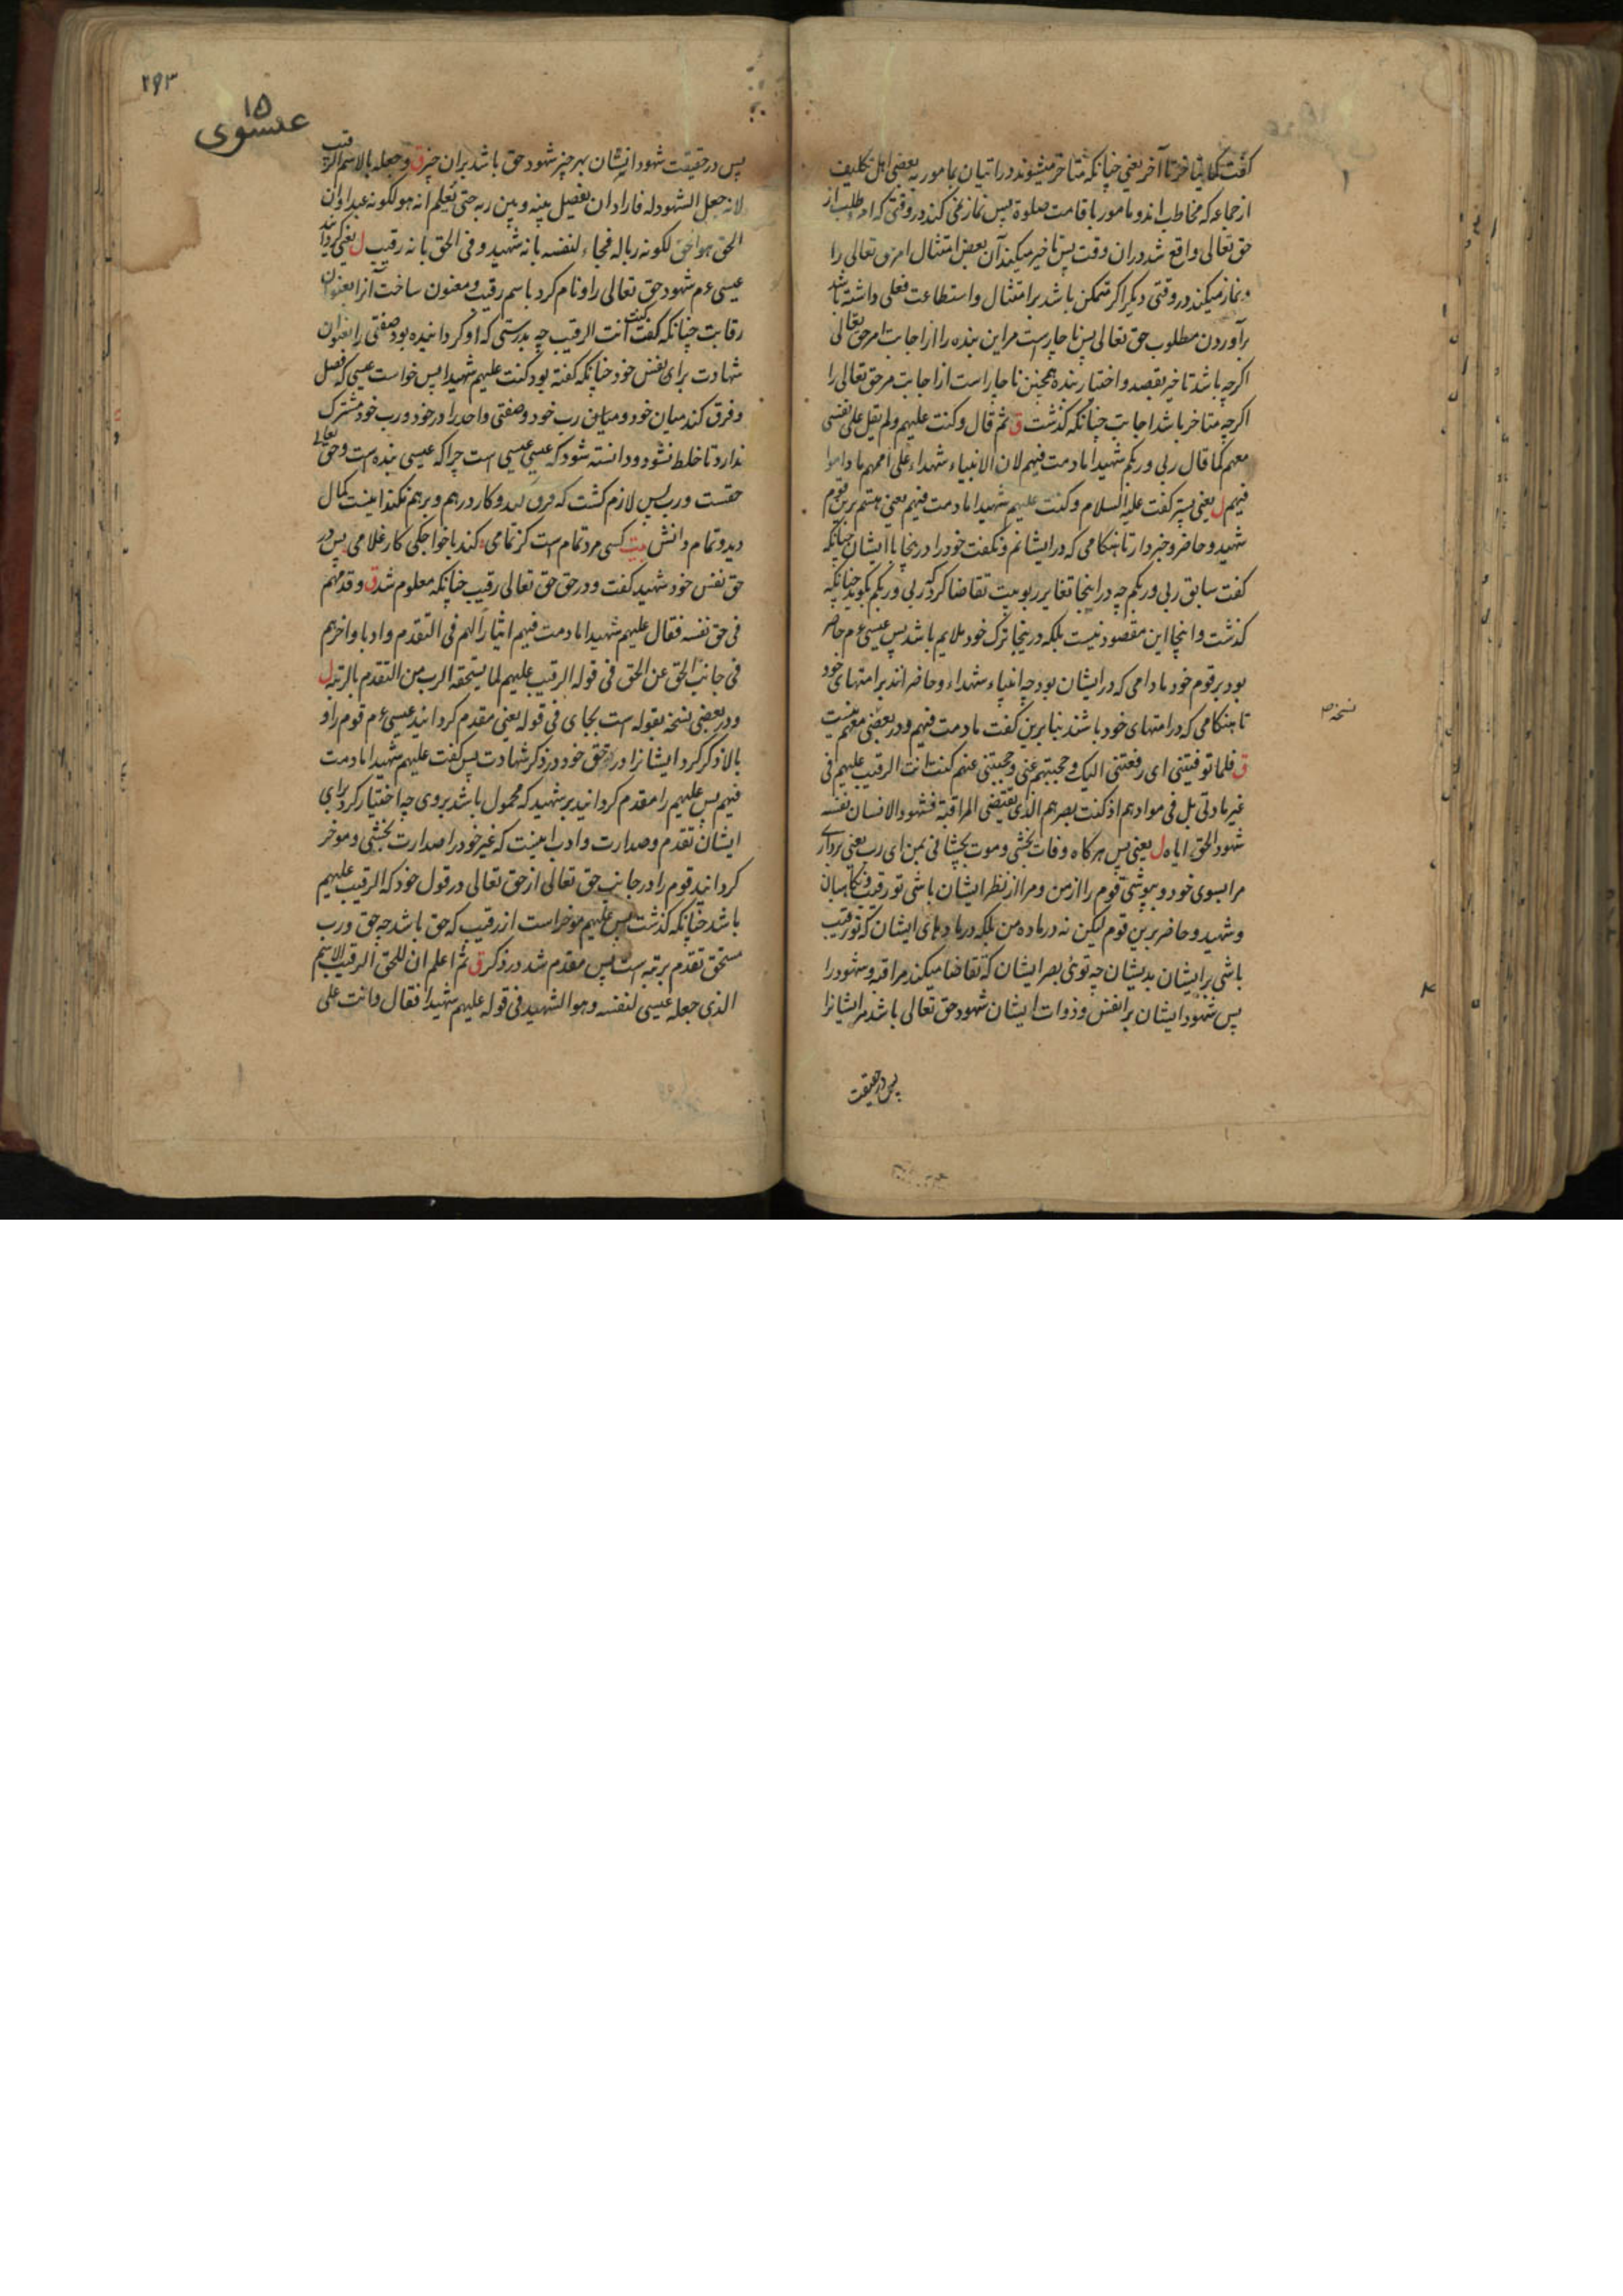 گفت کما یتأخر تا آخر یعنی چنانکه متأخر میشوند در اتیان بمامور به بعضی اهل تکلیف
از جماعه که مخاطب اند و مامور باقامت صلوة پس نماز نمی کند در وقتی که امر و طلب از
حق تعالی واقع شد در ان وقت پس تاخیر میکند آن بعض امتثال امر حق تعالی را
و نماز میکند در وقتی دیگر اگر متمکن باشد بر امتثال و استطاعت فعلی داشته باشد
برآوردن مطلوب حق تعالی پس ناچارست مر این بنده را از اجابت امر حق تعالی
اگرچه باشد تاخیر بقصد و اختیار بنده همچنین ناچار است از اجابت مر حق تعالی را
اگرچه متاخر باشد اجابت چنانکه گذشت ق ثم قال و کنت علیهم ولم یقل علی نفسی
معهم کما قال ربی و ربکم شهیدا ما دمت فیهم لان الانبیاء شهداء علی اممهم ما داموا
فیهم ل یعنی پستر گفت علیه السلام و کنت علیهم شهیدا ما دمت فیهم یعنی هستم برین قوم
شهید و حاضر و خبردار تا هنگامی که در ایشانم و نگفت خود را درینجا با ایشان چنانکه
گفت سابق ربی و ربکم چه در اینجا تغایر ربوبیت تقاضا کرد که ربی و ربکم بگوید چنانکه
گذشت و اینجا این مقصود نیست بلکه درینجا ترک خود ملایم باشد پس عیسی ءم حاضر
بود بر قوم خود مادامی که در ایشان بود چه انبیاء شهداء و حاضر اند بر امتهای خود
تا هنگامی که در امتهای خود باشند بنابرین گفت ما دمت فیهم و در بعضی معهم نیست
نسخه
ق فلما توفیتنی ای رفعتنی الیک و حجبتهم عنی و حجبتنی عنهم کنت انت الرقیب علیهم فی
غیر مادتی بل فی موادهم اذ کنت بصرهم الذی یقتضی المراقبة فشهود الانسان نفسه
شهود الحق ایاه ل یعنی پس هر گاه وفات بخشی و موت بچشانی بمن ای رب یعنی برداری
مرا بسوی خود و بپوشی قوم را از من و مرا از نظر ایشان باشی تو رقیب و نگاهبان
و شهید و حاضر برین قوم لیکن نه در ماده من بلکه در مادهای ایشان که تو رقیب
باشی بر ایشان بدیشان چه توئی بصر ایشان که تقاضا میکند مراقبه و شهود را
پس شهود ایشان بر انفس و ذوات ایشان شهود حق تعالی باشد مر ایشانرا
پس در حقیقت
۲۹۳
۱۵
عیسوی
پس در حقیقت شهود ایشان بهر چیز شهود حق باشد بران چیز ق و جعله بالاسم الرقیب
لانه جعل الشهود له فاراد ان یفصل بینه و بین ربه حتی یعلم انه هو لکونه عبدا و ان
الحق هو الحق لکونه ربا له فجاء لنفسه بانه شهید و فی الحق بانه رقیب ل یعنی گردانید
عیسی ءم شهود حق تعالی را و نام کرد باسم رقیب و معنون ساخت آنرا بعنوان
رقابت چنانکه گفت کنت انت الرقیب چه بدرستی که او گردانیده بود صفتی را بعنوان
شهادت برای نفس خود چنانکه گفته بود کنت علیهم شهیدا پس خواست عیسی که فصل
و فرق کند میان خود و میان رب خود و صفتی واحد را در خود و رب خود مشترک
ندارد تا خلط نشود و دانسته شود که عیسی عیسی است چرا که عیسی بنده است و حق تعالی
حقست و رب پس لازم گشت که فرق نهد و کار درهم و برهم نکند اینست کمال
دید و تمام دانش بیت کسی مرد تمام است کز تمامی کند با خواجگی کار غلامی پس در
حق نفس خود شهید گفت و در حق حق تعالی رقیب چنانکه معلوم شد ق و قدمهم
فی حق نفسه فقال علیهم شهیدا ما دمت فیهم ایثارا لهم فی التقدم و ادبا و اخرهم
فی جانب الحق عن الحق فی قوله الرقیب علیهم لما یستحقه الرب من التقدم بالرتبه ل
و در بعضی نسخه بقوله است بجای فی قوله یعنی مقدم گردانید عیسی ءم قوم را و
بالا ذکر کرد ایشانرا در حق خود در ذکر شهادت پس گفت علیهم شهیدا ما دمت
فیهم پس علیهم را مقدم گردانید بر شهید که محمول باشد بر وی چه اختیار کرد برای
ایشان تقدم و صدارت و ادب اینست که غیر خود را صدارت بخشی و موخر
گردانید قوم را در جانب حق تعالی از حق تعالی در قول خود که الرقیب علیهم
باشد چنانکه گذشت پس علیهم موخر است از رقیب که حق باشد چه حق و رب
مستحق تقدم برتبه است پس مقدم شد در ذکر ق ثم اعلم ان للحق الرقیب الاسم
الذی جعله عیسی لنفسه و هو الشهید فی قوله علیهم شهیدا فقال و انت علی